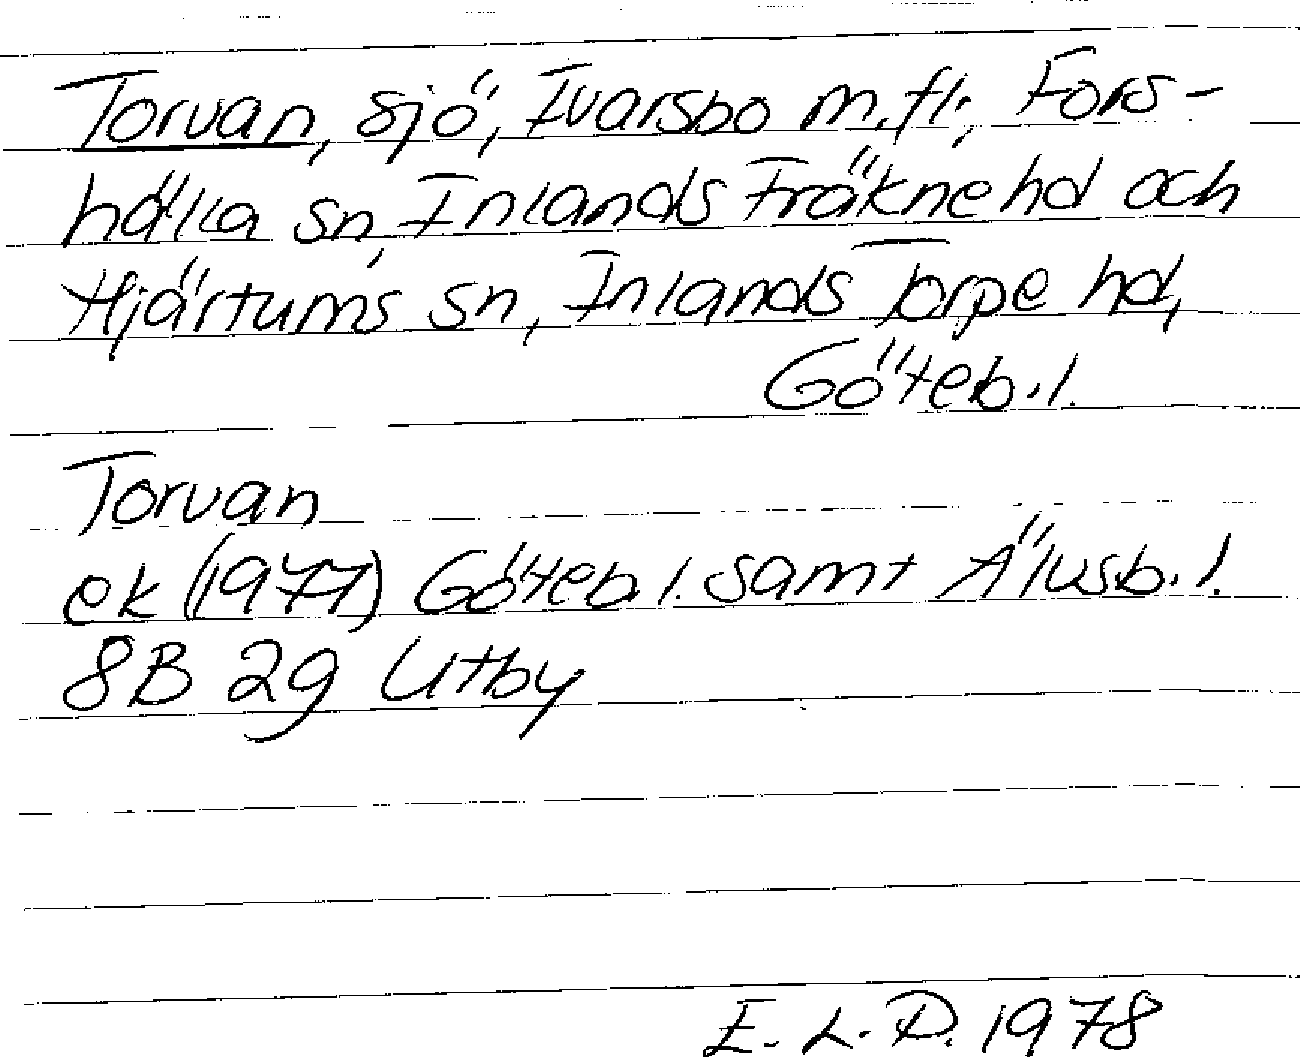 Torvan, sjö, Ivarsbo m.fl., Fors-
hälla sn, Inlands Fräkne hd och
Hjärtums sn, Inlands Torpe hd,
Göteb. l.
Torvan
ek (1977) Göteb. l. samt Älvsb. l.
8B 2g Utby
E. L. D. 1978